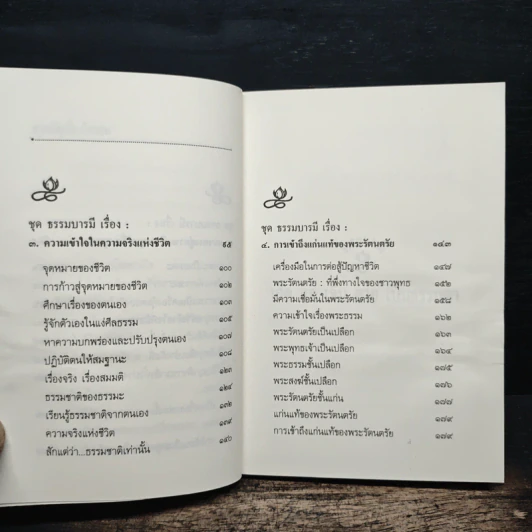 ชุด ธรรมบารมี เรื่อง :
๓. ความเข้าใจในความจริงแห่งชีวิต ๙๕
จุดหมายของชีวิต ๑๐๐
การก้าวสู่จุดหมายของชีวิต ๑๐๒
ศึกษาเรื่องของตนเอง ๑๐๓
รู้จักตัวเองในแง่ศีลธรรม ๑๐๕
หาความบกพร่องและปรับปรุงตนเอง ๑๐๗
ปฏิบัติตนให้สมฐานะ ๑๐๘
เรื่องจริง เรื่องสมมติ ๑๒๓
ธรรมชาติของธรรมะ ๑๒๔
เรียนรู้ธรรมชาติจากตนเอง ๑๓๒
ความจริงแห่งชีวิต ๑๓๙
สักแต่ว่า...ธรรมชาติเท่านั้น
ชุด ธรรมบารมี เรื่อง :
๔. การเข้าถึงแก่นแท้ของพระรัตนตรัย ๑๔๓
เครื่องมือในการต่อสู้ปัญหาชีวิต ๑๔๗
พระรัตนตรัย : ที่พึ่งทางใจของชาวพุทธ ๑๕๒
มีความเชื่อมั่นในพระรัตนตรัย ๑๕๘
ความเข้าใจเรื่องพระธรรม ๑๖๒
พระรัตนตรัยเป็นเปลือก ๑๖๓
พระพุทธเจ้าเป็นเปลือก ๑๖๔
พระธรรมชั้นเปลือก ๑๗๕
พระสงฆ์ชั้นเปลือก ๑๗๖
พระรัตนตรัยชั้นแก่น ๑๗๗
แก่นแท้ของพระรัตนตรัย ๑๗๙
การเข้าถึงแก่นแท้ของพระรัตนตรัย ๑๗๙